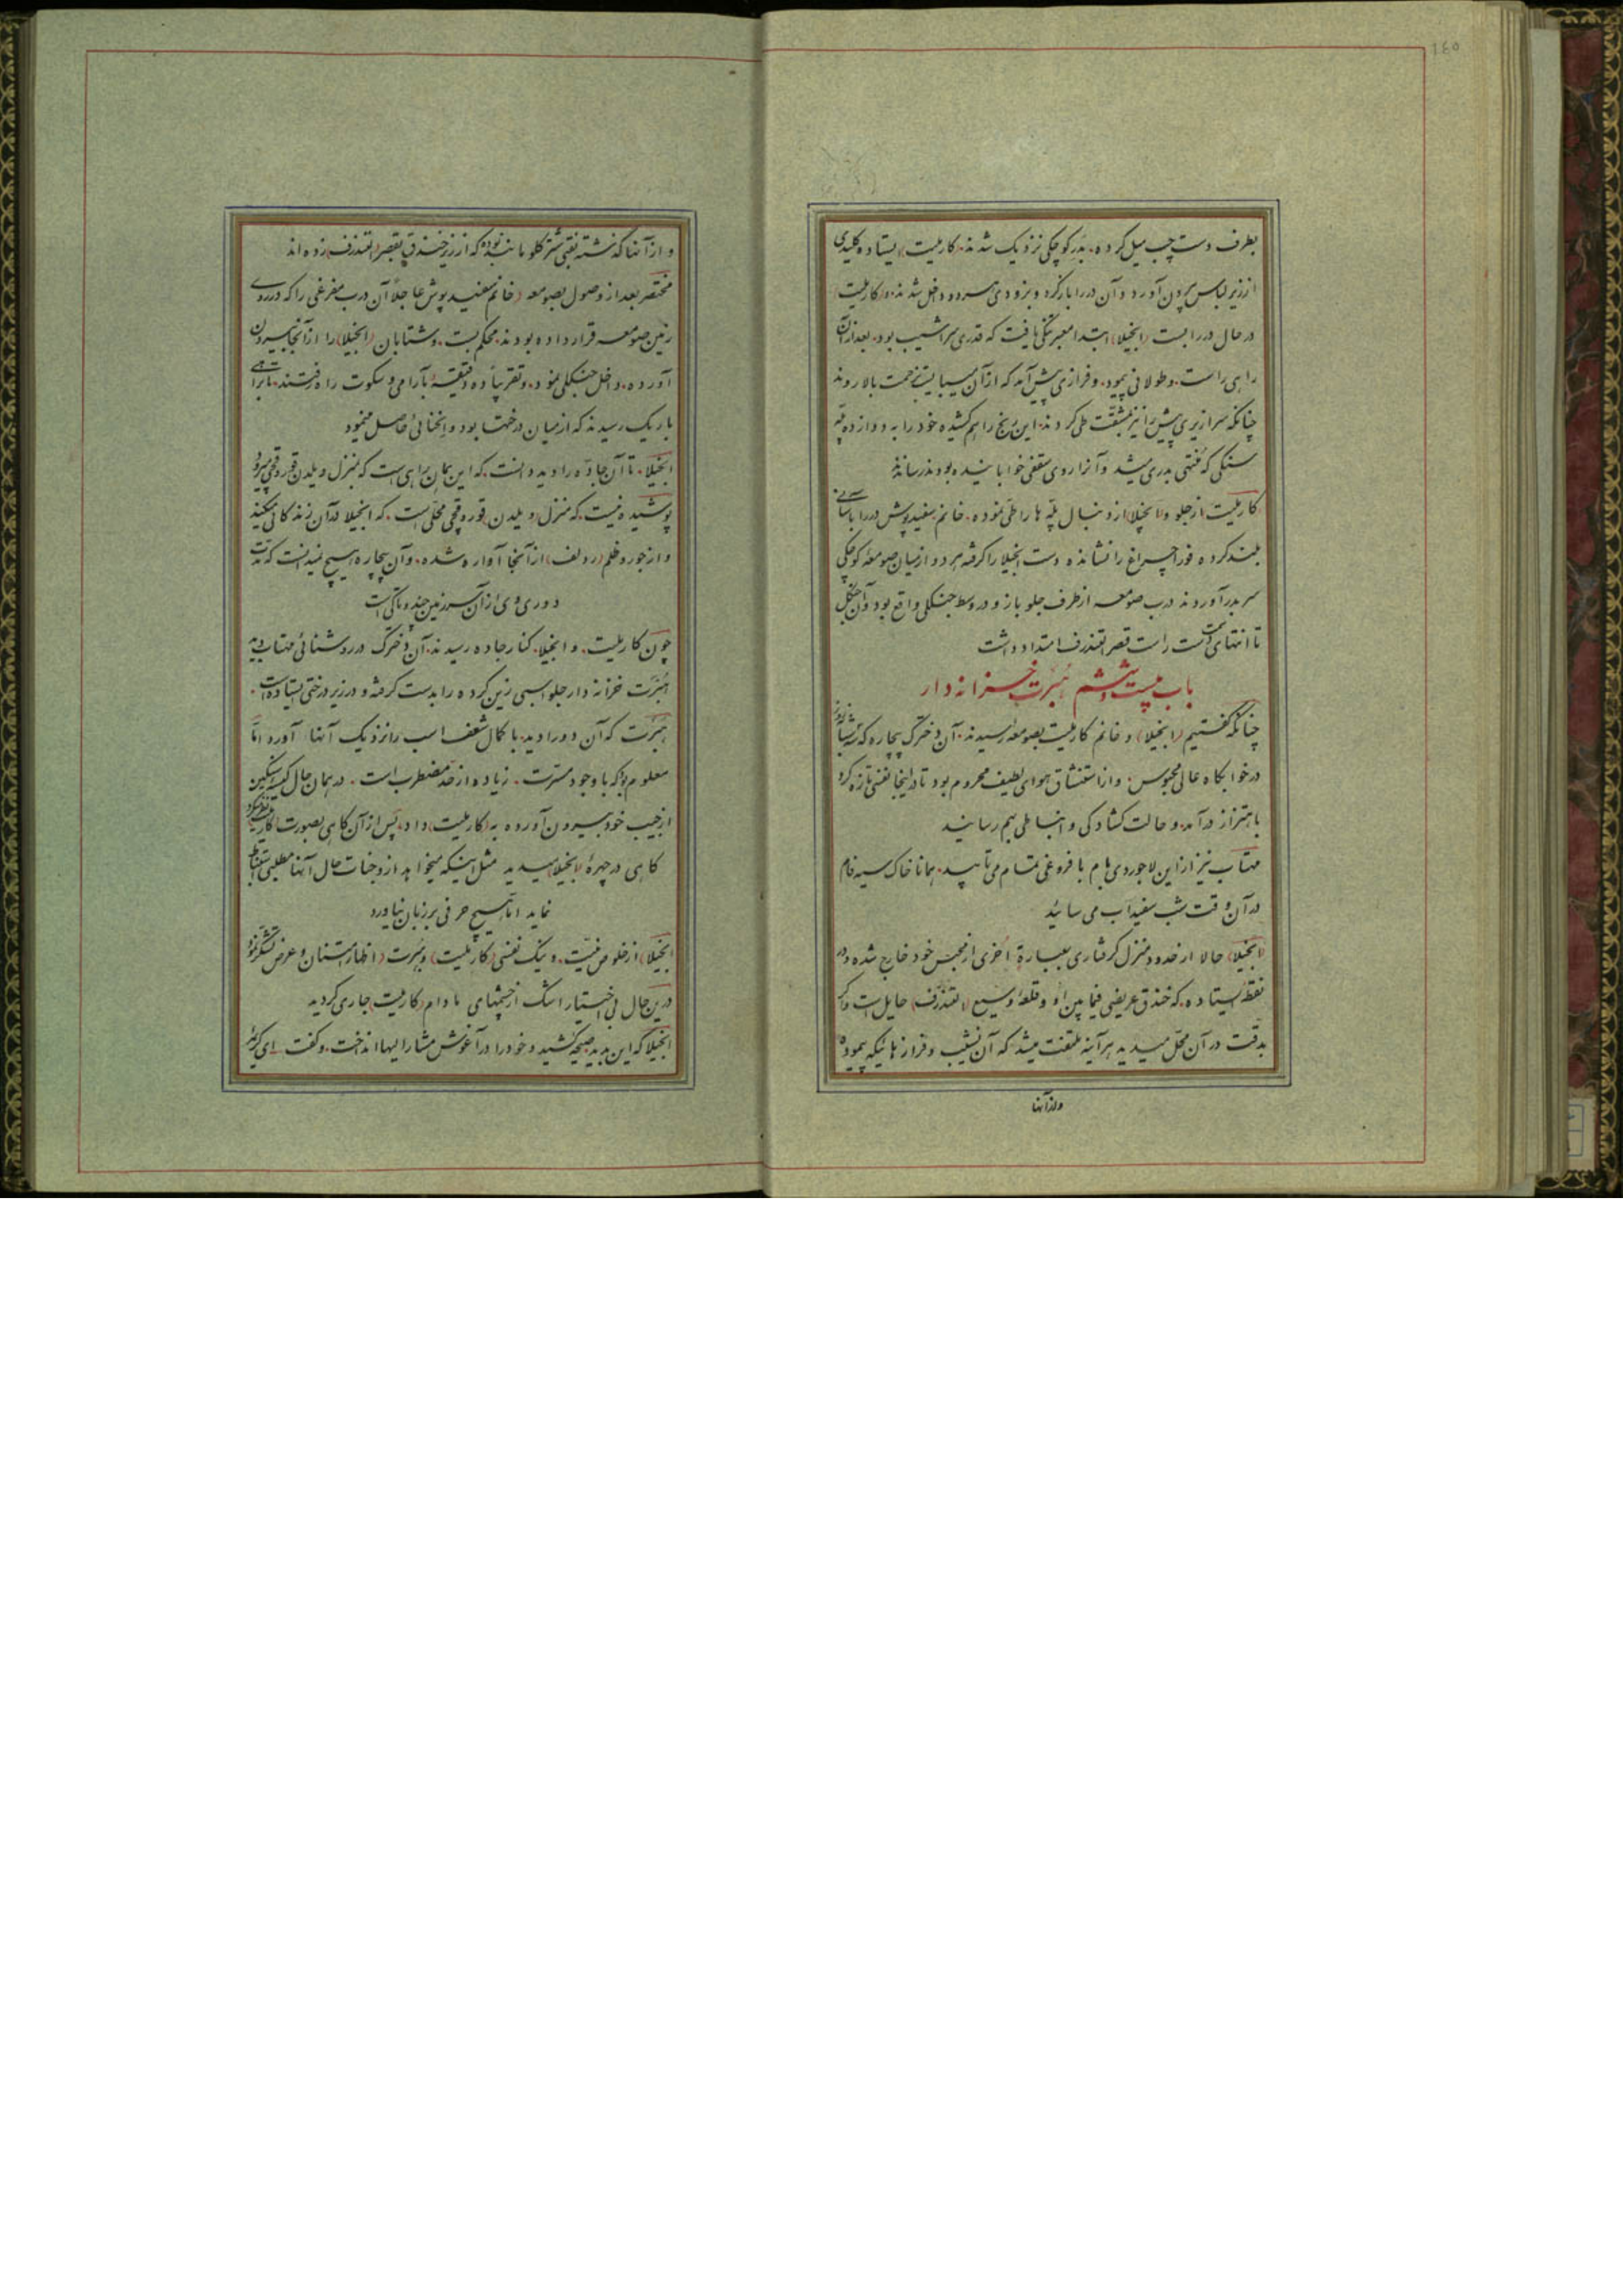 ١٤٥
بطرف دست چپ میل کرده، بدر کوچکی نزدیک شدند، کارلیت ایستاده کلیدی
از زیر لباس بیرون آورد و آن در را باز کرد و بزودی هر دو داخل شدند و کارلیت
در حال در را بست (انجیلا) ابتدا معبر تنگی یافت که قدری سراشیب بود، بعد از آن
راهی راست و طولانی پیمود، و فرازی پیش آمد که از آن میبایست بزحمت بالا روند
چنانکه سرازیری پیش را نیز بمشقت طی کردند، این رنج را هم کشیده خود را به دوازده پله
سنگی که منتهی بدری میشد و آنرا روی سقفی خوابانیده بودند رساندند
کارلیت از جلو و انجیلا از دنبال پله ها را طی نموده، خانم سفیدپوش در را بآسانی
بلند کرده فورا چراغ را نشانده دست انجیلا را گرفته هر دو از میان صومعه کوچکی
سر بدر آوردند درب صومعه از طرف جلو باز و در وسط جنگلی واقع بود و آن جنگل
تا انتهای سمت راست قصر التندرف امتداد داشت
باب بیست و ششم هبرت خزانه دار
چنانکه گفتیم (انجیلا) و خانم کارلیت بصومعه رسیدند، آن دخترک بیچاره که سه شبانه روز
در خوابگاه عالی محبوس و از استنشاق هوای لطیف محروم بود تا در اینجا نفسی تازه کرد
باهتزاز درآمد و حالت گشادگی و انبساطی بهم رسانید
مهتاب نیز از این لاجوردی بام با فروغی تمام می تابید، همانا خاک سیه فام
در آن وقت شب سفیداب می سائید
(انجیلا) حالا از حدود منزل گرفتاری بعبارة اخری از محبس خود خارج شده و در
نقطه ایستاده، که خندق عریضی فیما بین او و قلعه وسیع (التندرف) حایل است و اگر
بدقت در آن محل میدید هر آینه ملتفت میشد که آن نشیب و فرازهائیکه پیموده
و از آنها
و از آنها گذشته نقبی بیشتر گلو مانند نبوده که از زیر خندق بقصر التندرف زده اند
مختصر بعد از وصول بصومعه (خانم سفیدپوش عاجلاً آن درب مفرغی را که در روی
زمین صومعه قرار داده بودند محکم بست، و شتابان (انجیلا) را از آنجا بیرون
آورده، داخل جنگلی نمود، و تقریباً ده دقیقه بآرامی و سکوت راه رفتند، تا براهی
باریک رسیدند که از میان درختها بود و انحنائی حاصل مینمود
انجیلا تا آن جاده را دید دانست، که این همان راهی است که بمنزل ویلدن قوروقچی میرود
پوشیده نیست، که منزل ویلدن قوروقچی محلی است، که انجیلا در آن زندگانی میکند
و از جور و ظلم (ردلف) از آنجا آواره شده، و آن بیچاره هیچ نمیدانست که مدت
دوری وی از آن سرزمین چند و تا کی است
چون کارلیت و انجیلا کنار جاده رسیدند، آن دخترک در روشنائی مهتاب دید
هبرت خزانه دار جلو اسبی زین کرده را بدست گرفته و در زیر درختی ایستاده است،
هبرت که آن دو را دید، با کمال شعف اسب را نزدیک آنها آورد اما
معلوم بود که با وجود مسرت، زیاده از حد مضطرب است، در همان حال کیسه سنگین
از جیب خود بیرون آورده به (کارلیت) داد، پس از آن گاهی بصورت کارلیت نظر میکرد
گاهی در چهره (انجیلا) میدید مثل اینکه میخواهد از وجنات حال آنها مطلبی استنباط
نماید اما هیچ حرفی بر زبان نیاورد
انجیلا) از خلوص نیت، و نیک نفسی (کارلیت) و هبرت (اظهار امتنان و عرض تشکر نمود
در این حال بی اختیار اشک از چشمهای مادام (کارلیت) جاری گردید
انجیلا که این بدید صیحه کشید و خود را در آغوش مشارالیها انداخت، و گفت ای